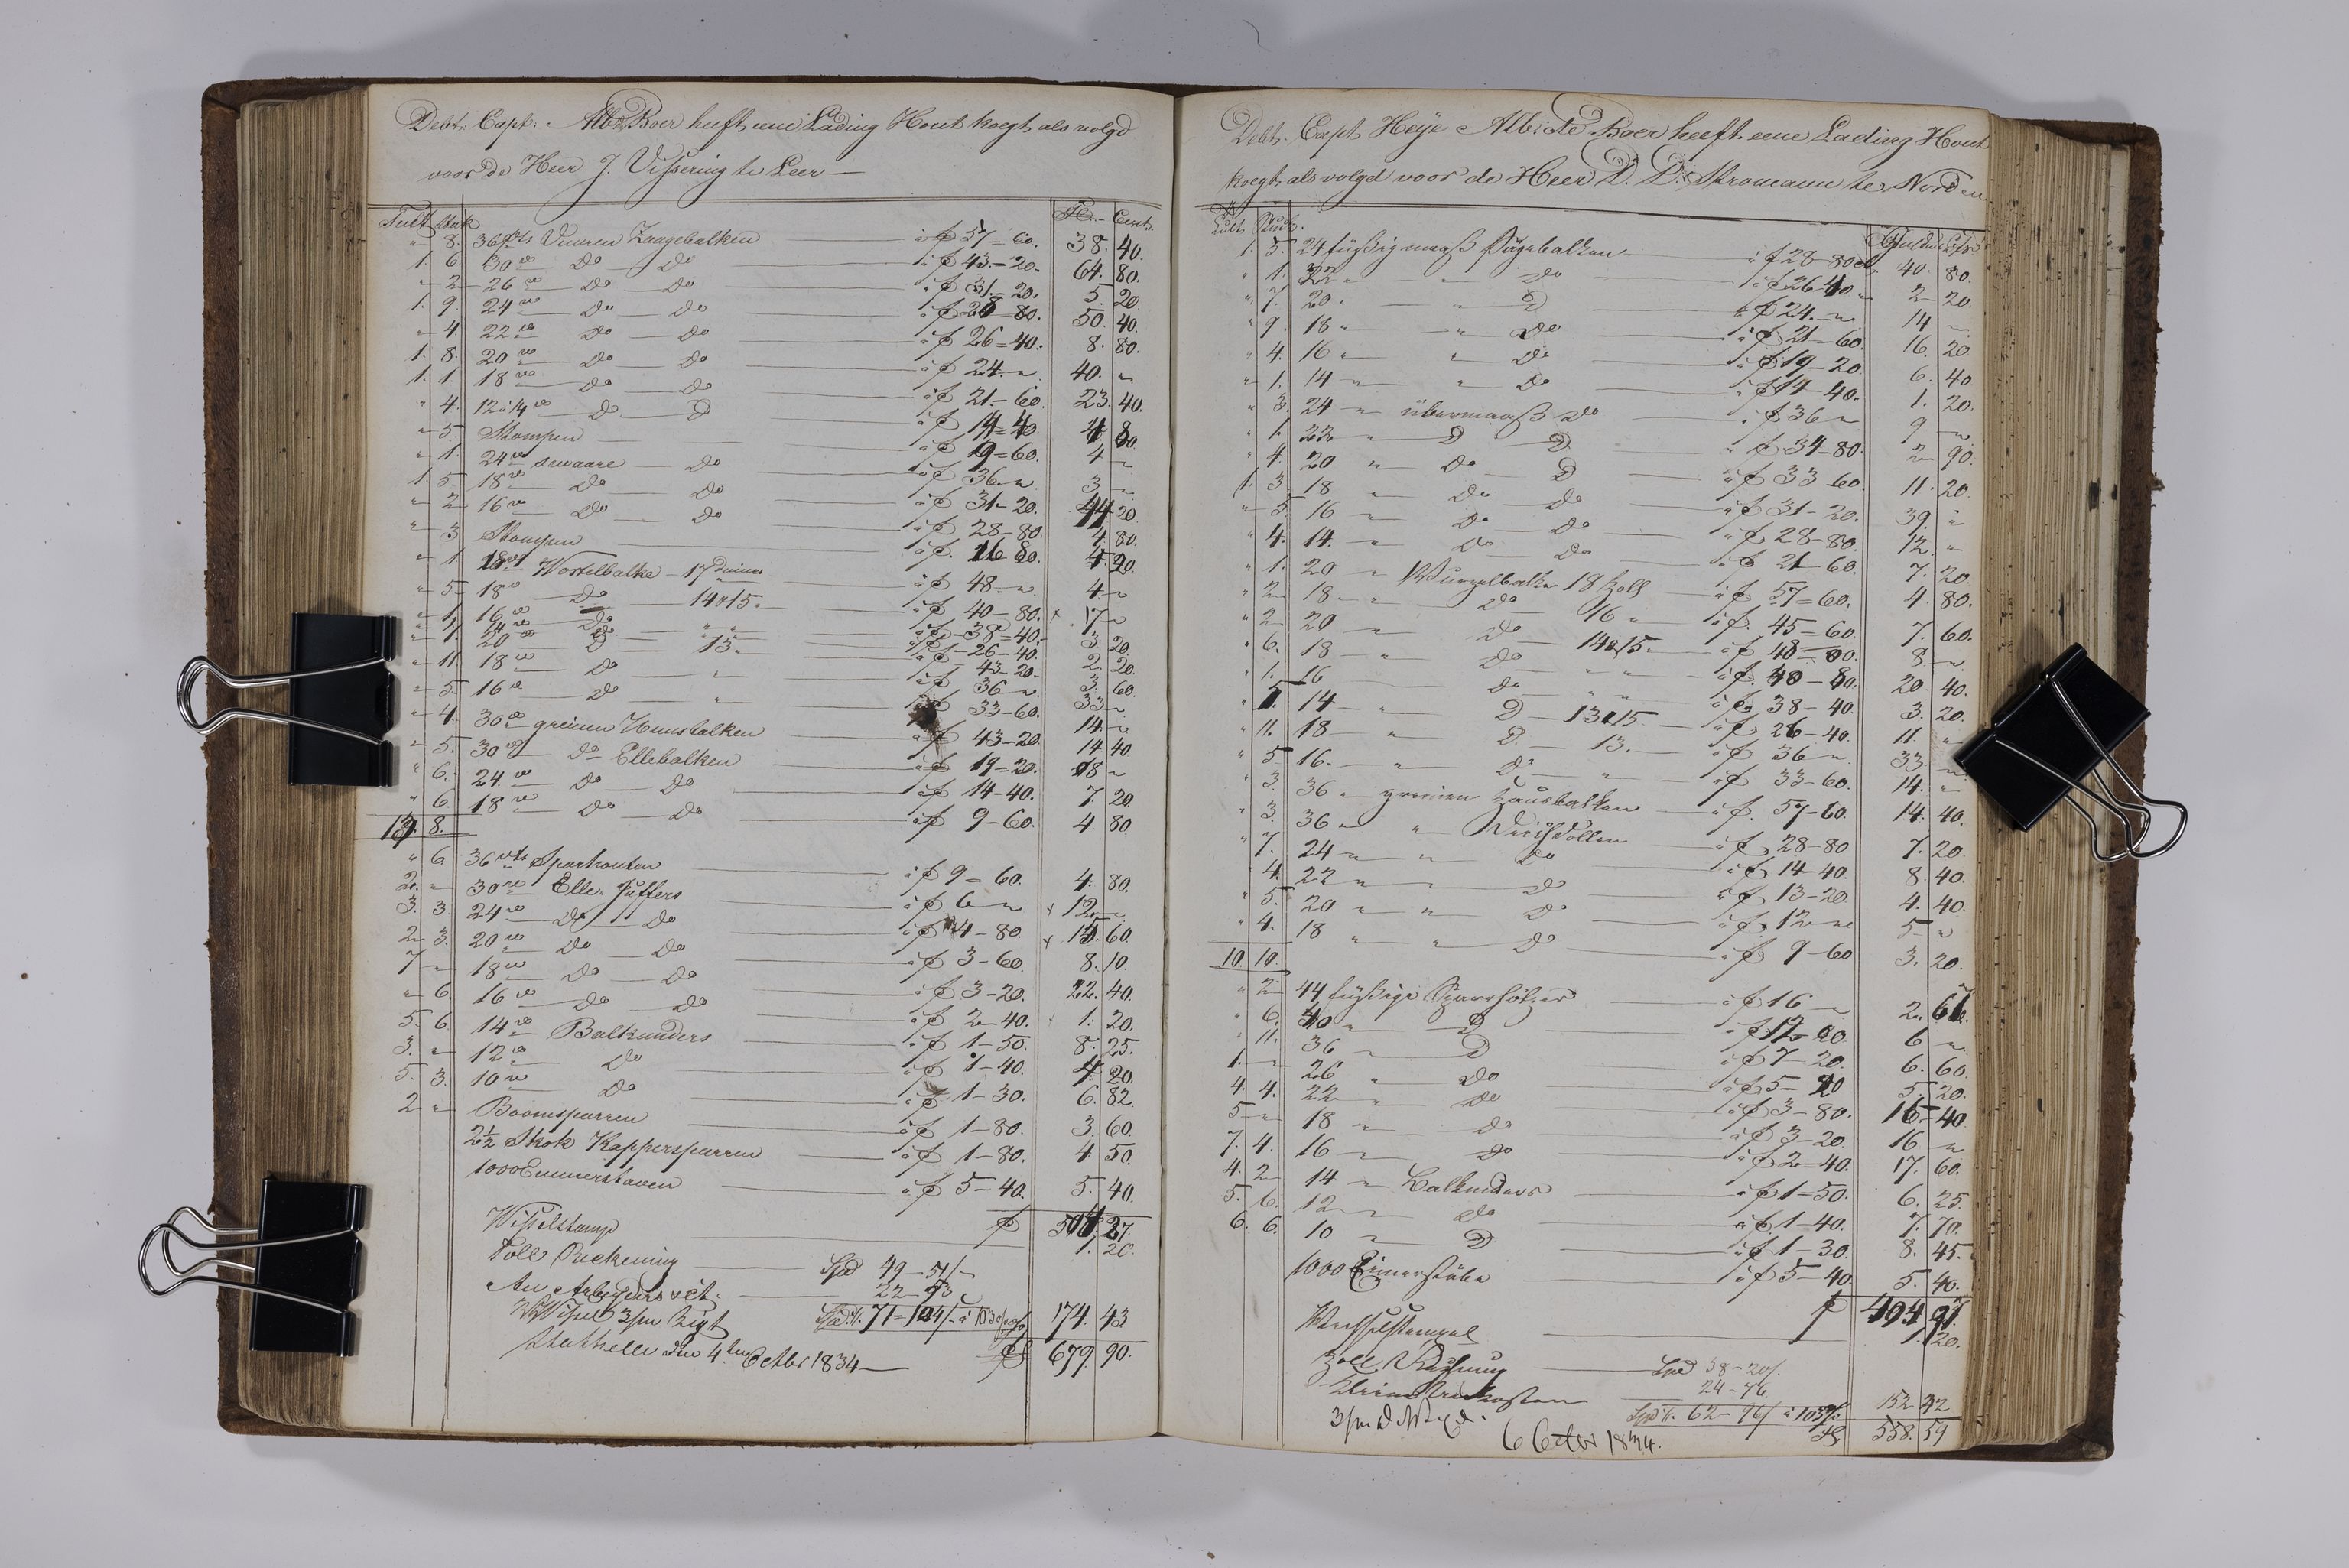 Debt. Capt. Alb: Boer heeft eene Lading Hout kogt, als volgd
voor de Heer J. Vissering te Leer —
Tult Stuk Fl. Cent.
" 8. 36 vts Vuuren Zaagebalken à f 57=60. 38. 40.
1. 6. 30 " Do Do à f 43.-20. 64. 80.
" 2 26 " Do Do à f 31.-20. 5. 20
1. 9. 24 " Do Do à f 28-80. 50. 40.
" 4. 22 " Do Do à f 26=40. 8. 80.
1. 8. 20 " Do Do à f 24 " 40. "
1. 1. 18 " Do Do à f 21-60. 23. 40.
" 4. 12 à 14 " Do D à f 14=40. 4 80
" 5. Stompen à f 9=60. 4 "
" 1. 24 " swaare Do à f 36 " 3 "
1. 5 18 " Do Do à f 31-20. 44 20
" 2 16 " Do Do à f 28-80. 4. 80.
" 3 Stompen à f 16 80. 4. 20
" 1 18 " Wortelbalke - 17 duims à f 48 " 4 "
" 5 18 " Do 14 à 15. à f 40-80. 17 "
" 1. 16 " Do " " à f 38=40. 3 20.
" 1. 14 " D " " à f 26-40. 2. 20.
" 1. 20 " D 13. à f 43-20. 3. 60
" 11 18 " Do " à f 36 " 33 "
" 5. 16 " Do " à f 33-60. 14. "
" 4. 30 " greinen Huusbalken à f 43-20 14 40
" 5. 30 " Do Ellebalken à f 19=20. 8 "
" 6. 24 " Do Do à f 14-40. 7. 20.
" 6. 18 " Do Do à f 9-60. 4 80
13. 8.
" 6 36 vts Sparhouten à f 9=60. 4. 80.
2. " 30 " Elle Juffers à f 6 " 12 "
3. 3. 24 " Do Do à f 4-80. 15. 60.
2 3. 20 " Do Do à f 3-60. 8. 10.
7 " 18 " Do Do à f 3-20. 22. 40.
" 6. 16 " Do Do à f 2-40. 1. 20.
5. 6. 14 " Balkunders à f 1-50. 8. 25.
3. " 12 " Do à f 1-40. 4. 20.
5. 3. 10 " Do à f 1-30. 6. 82.
2 " Boomsparren à f 1-80. 3. 60.
2½ Skok Kappersparren à f 1-80. 4. 50.
1000 Emmerstaven à f 5-40. 5. 40.
f 504. 27.
Wisselstemp 1. 20.
Toll Reckening Spd 49-51/-
22-73
Spd. 71-124/- à 103 174. 43
f 679. 90.
Stathelle den 4ten Octbr 1834
Debt. Capt. Heÿe Alb: de Boer heeft eene Lading Hout
kogt, als volgd voor de Heer D. D. Stromann te Norden
1. 5. 24 füßig maaß Sägebalken à f 28-80 40. 80.
" 1. 22 " " Do à f 26-40 2 20.
" 7. 20 " " D à f 24 " 14 "
" 9. 18 " " Do à f 21-60. 16. 20
" 4. 16 " " Do à f 19-20. 6. 40.
" 1. 14 " " Do à f 14-40. 1. 20.
" 3. 24 " übermaaß Do à f 36 " 9 "
" 1. 22 " D D à f 34-80. 2 90.
" 4. 20 " Do D à f 33-60. 11. 20.
1. 3. 18 " Do Do à f 31-20. 39. "
" 5. 16 " Do Do à f 28-80. 12. "
" 4. 14 " Do Do à f 21-60. 7. 20.
" 1. 20 " Wurzelbalken 18 Zoll à f 57=60. 4. 80.
" 2 18 " Do 16 " à f 45=60. 7. 60.
" 2 20 " Do 14 à 15. à f 48-00. 8 "
" 6. 18 " Do " " à f 40-80. 20. 40.
" 1. 16 " Do " " à f 38-40. 3. 20.
" 5. 14 " D 13 à 15 à f 26-40. 11. "
" 11. 18 " D 13. à f 36 " 33. "
" 5 16. " D " à f 33-60. 14. "
" 3. 36 " greinen Hausbalken à f 57-60. 14. 40.
" 3. 36 " " à f 28-80 7. 20.
" 7. 24 " " Do à f 14-40 8. 40.
" 4. 22 " " Do à f 13-20 4. 40.
" 5. 20 " " Do à f 12 " 5 "
" 4. 18 " " Do à f 9-60 3. 20.
10. 10.
" 2 44 füßige Sparrhölzer à f 16 " 2. 66.
" 6. 40 " D à f 12-00 6 "
" 11. 36 " D à f 7-20. 6. 60.
1. " 26 " Do à f 5-20 5. 20.
4. 4. 22 " Do à f 3-80. 16 40.
5 " 18 " Do à f 3-20 16 "
7. 4. 16 " Do à f 2=40. 17. 60.
4. 2 14 " Balkenders à f 1=50. 6. 25.
5. 6. 12 " Do à f 1-40. 7. 70.
6. 6. 10 " D à f 1-30. 8. 45.
1000 Eimerstäbe à f 5-40. 5. 40.
f 404 97.
Wechselstempel 1. 20.
Zoll Rechnung Spd 38-20/.
24-76
Spd. 62-96/ à 103 152 42
558. 59
6 Octbr 1834.